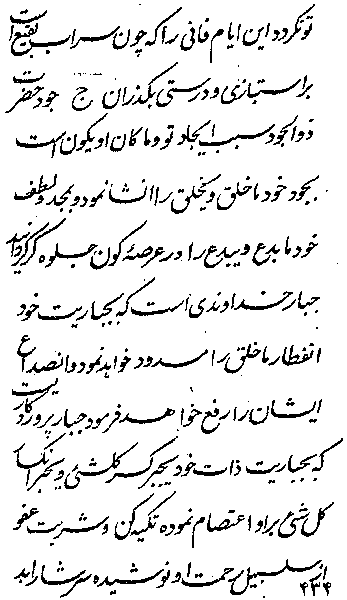 تو نگردد این ایام فانی را که چون سراب بقیع است
براستبازی و درستی بگذران ج جود حضرت
ذوالجود سبب ایجاد تو و ما کان او یکون است
بجود خود ما خلق و یخلق را انشا نمود و بمجد و لطف
خود ما بدع و یبدع را در عرصهٔ کون جلوه گر گردانید
جبار خداوندی است که بجباریت خود
انفطار ما خلق را مسدود خواهد نمود و انصداع
ایشان را رفع خواهد فرمود جبار پروردگاریست
که بجباریت ذات خود یجبر کسر کلشئ و یجبر انکسار
کل شئ بر او اعتصام نموده تکیه کن و شربت عفو
از سلسبیل رحمت او نوشیده سرشار ابد
۴۳۴